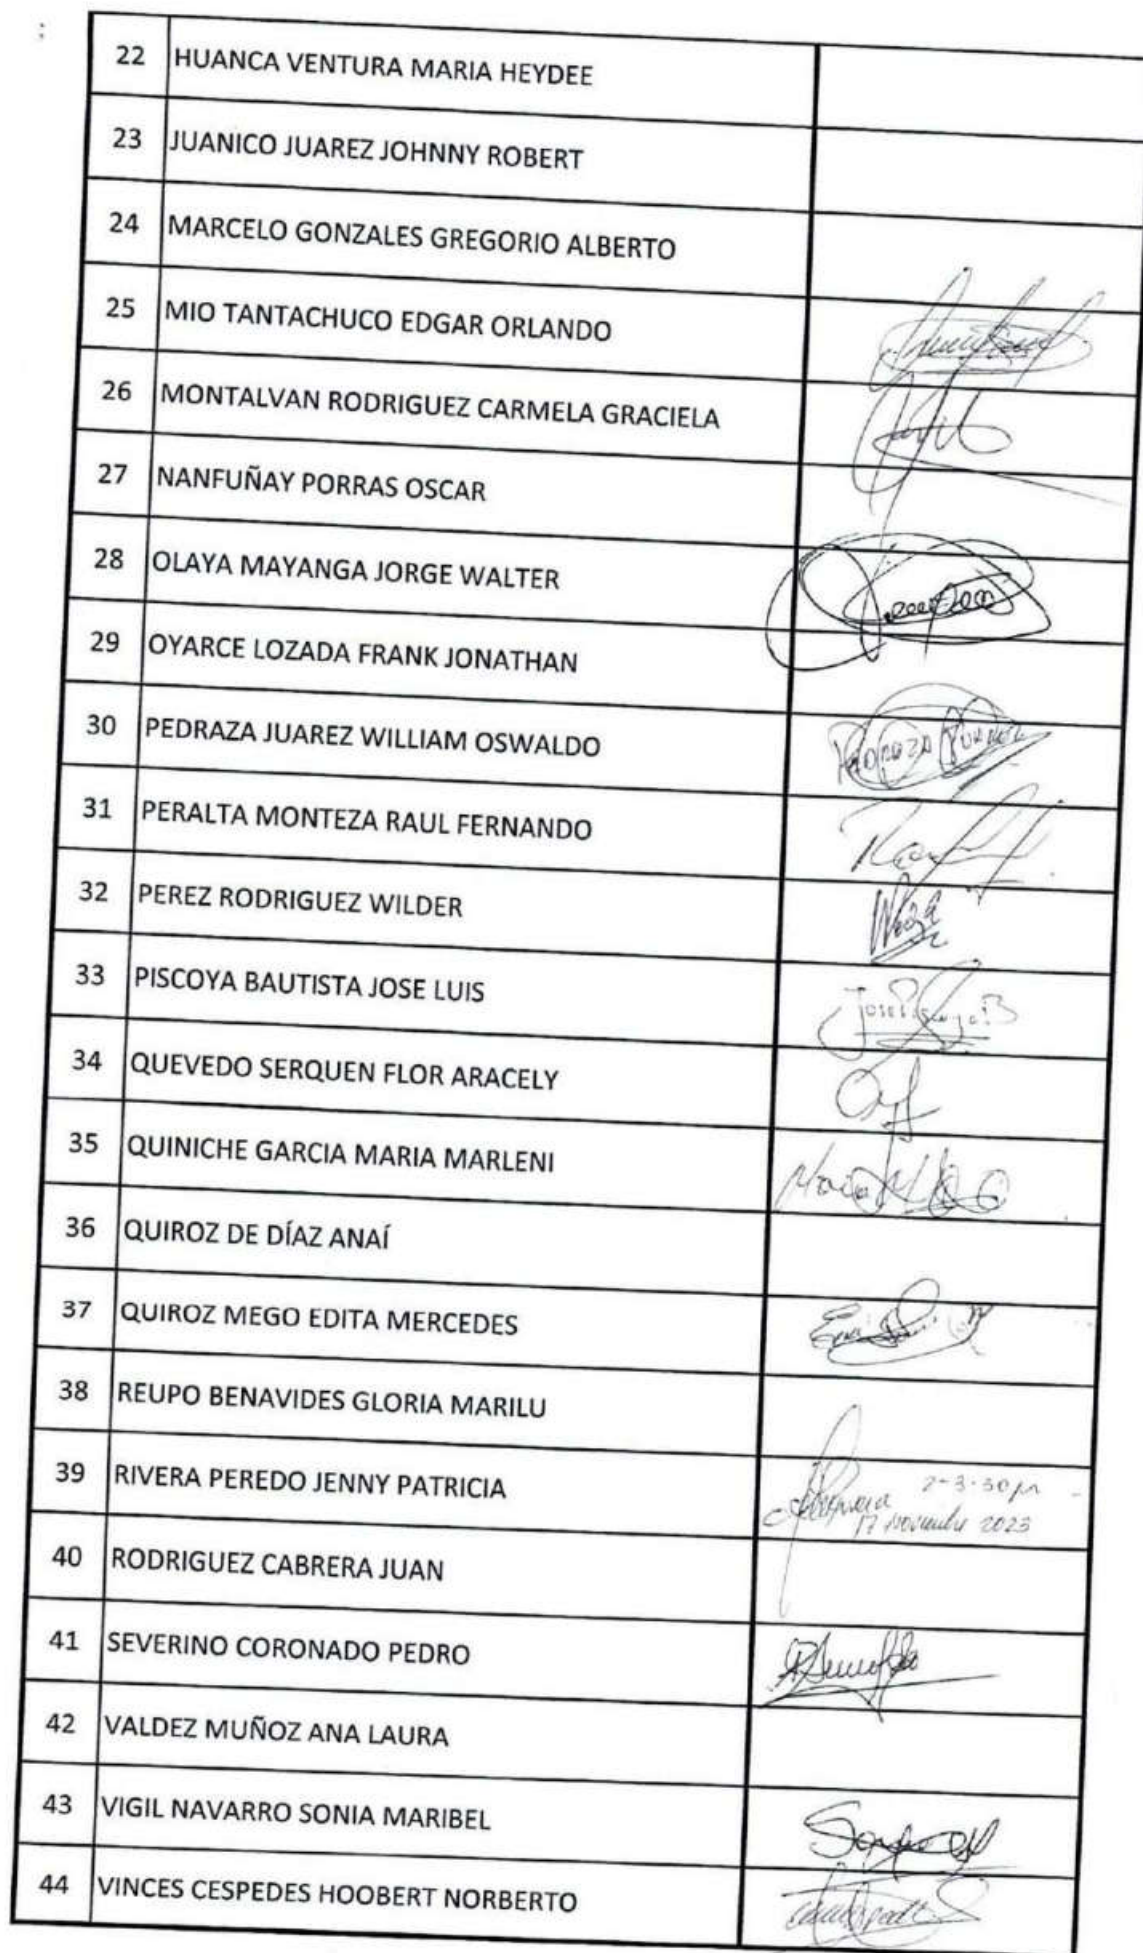 22 HUANCA VENTURA MARIA HEYDEE
23 JUANICO JUAREZ JOHNNY ROBERT
24 MARCELO GONZALES GREGORIO ALBERTO
25 MIO TANTACHUCO EDGAR ORLANDO
26 MONTALVAN RODRIGUEZ CARMELA GRACIELA
27 NANFUÑAY PORRAS OSCAR
28 OLAYA MAYANGA JORGE WALTER
29 OYARCE LOZADA FRANK JONATHAN
30 PEDRAZA JUAREZ WILLIAM OSWALDO
31 PERALTA MONTEZA RAUL FERNANDO
32 PEREZ RODRIGUEZ WILDER
33 PISCOYA BAUTISTA JOSE LUIS
34 QUEVEDO SERQUEN FLOR ARACELY
35 QUINICHE GARCIA MARIA MARLENI
36 QUIROZ DE DÍAZ ANAÍ
37 QUIROZ MEGO EDITA MERCEDES
38 REUPO BENAVIDES GLORIA MARILU
39 RIVERA PEREDO JENNY PATRICIA 2-3:30pm
17 noviembre 2023
40 RODRIGUEZ CABRERA JUAN
41 SEVERINO CORONADO PEDRO
42 VALDEZ MUÑOZ ANA LAURA
43 VIGIL NAVARRO SONIA MARIBEL
44 VINCES CESPEDES HOOBERT NORBERTO